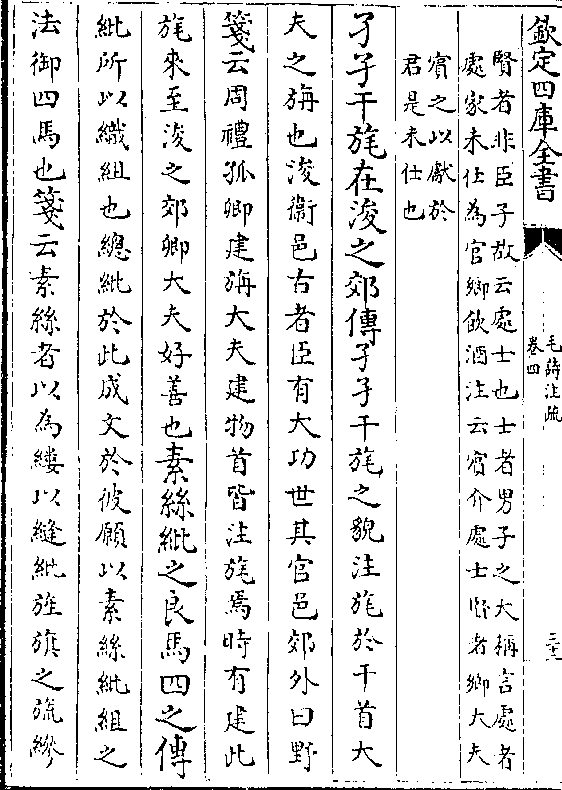 欽定四庫全書
毛詩注疏
卷四
三十二
賢者非臣子故云處士也士者男子之大稱言處者
處家未仕為官鄉飲酒注云賓介處士賢者鄉大夫
賓之以獻於
君是未仕也
孑孑干旄在浚之郊傳孑孑干旄之貌注旄於干首大
夫之旃也浚衛邑古者臣有大功世其官邑郊外曰野
箋云周禮孤卿建旃大夫建物首皆注旄焉時有建此
旄來至浚之郊卿大夫好善也素絲紕之良馬四之傳
紕所以織組也總紕於此成文於彼願以素絲紕組之
法御四馬也箋云素絲者以為縷以縫紕旌旗之旒縿